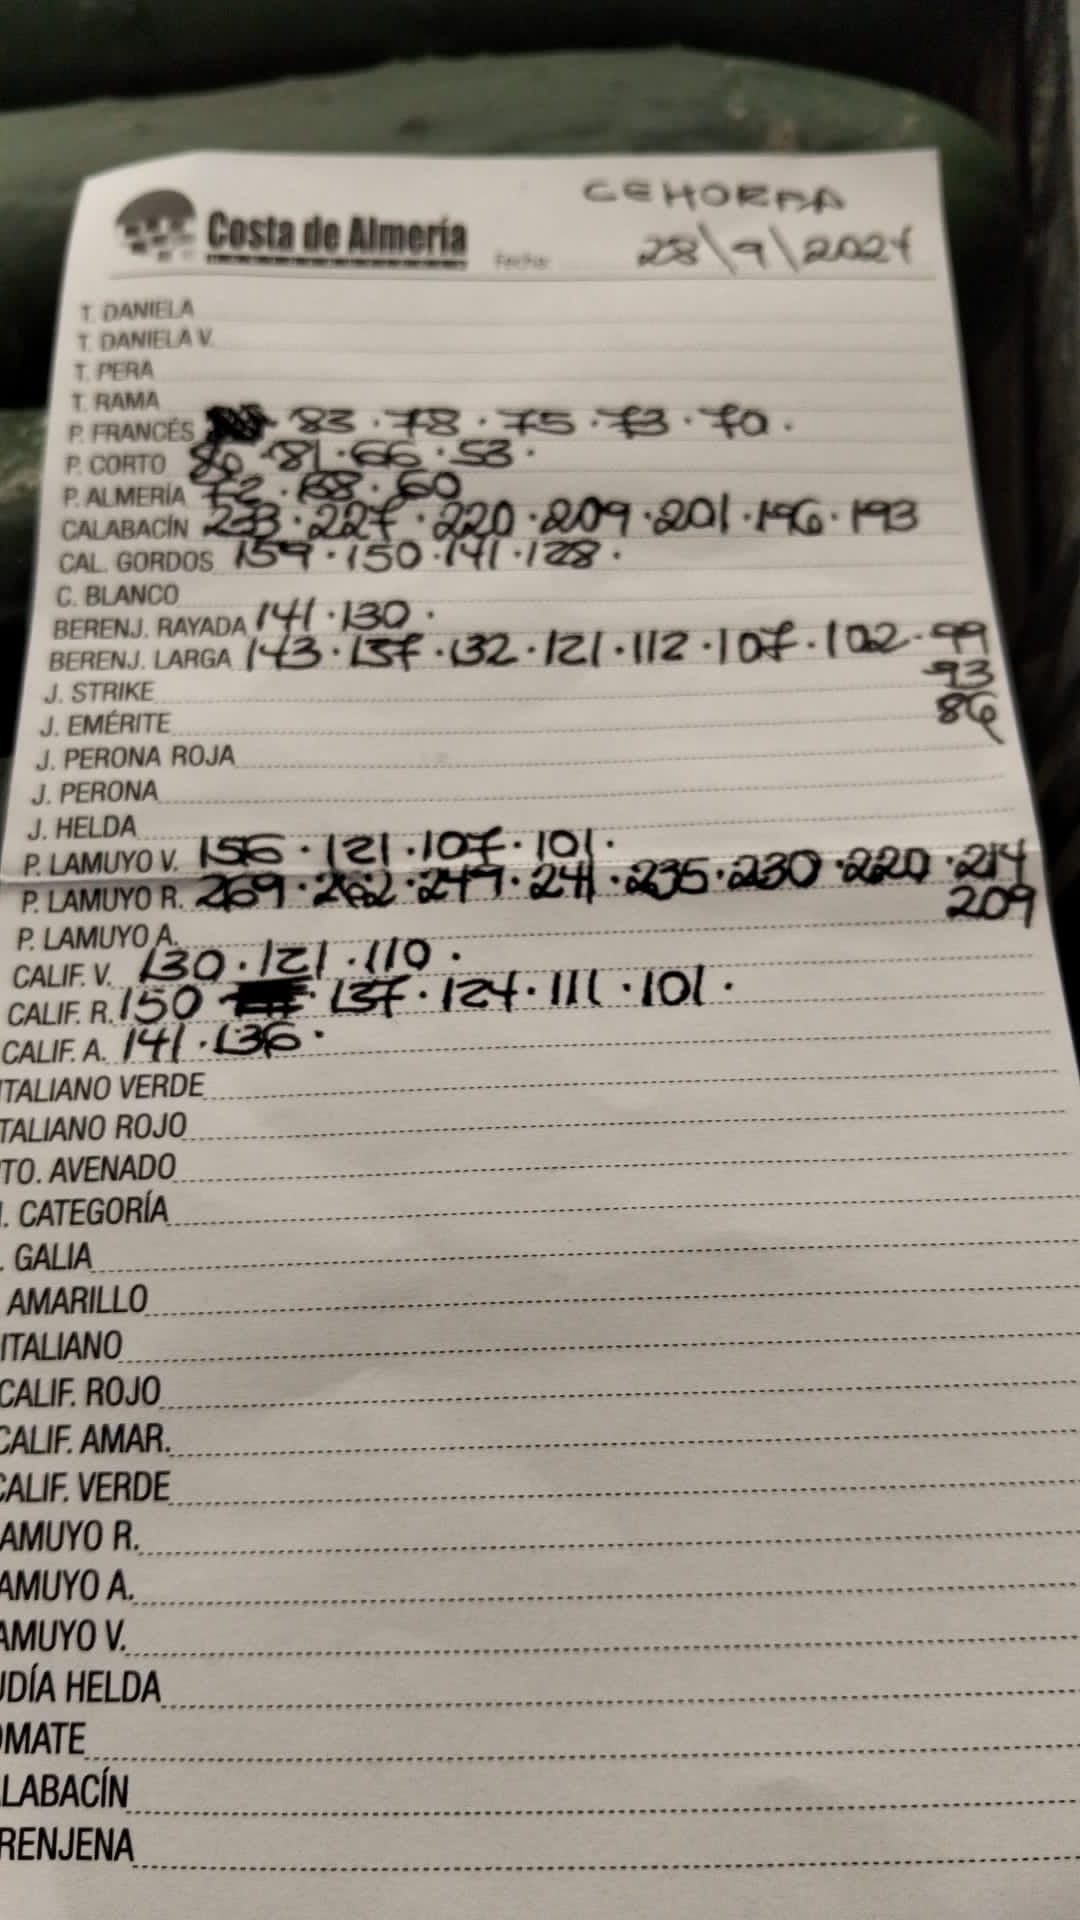 CEHORPA
Costa de Almería
Fecha: 28\9\2024
T. DANIELA
T. DANIELA V.
T. PERA
T. RAMA
P. FRANCÉS 83 · 78 · 75 · 73 · 70 ·
P. CORTO 80 · 81 · 66 · 53 ·
P. ALMERÍA 72 · 68 · 60
CALABACÍN 233 · 227 · 220 · 209 · 201 · 196 · 193
CAL. GORDOS 159 · 150 · 141 · 128 ·
C. BLANCO
BERENJ. RAYADA 141 · 130 ·
BERENJ. LARGA 143 · 137 · 132 · 121 · 112 · 107 · 102 · 99
93
J. STRIKE
86
J. EMÉRITE
J. PERONA ROJA
J. PERONA
J. HELDA
P. LAMUYO V. 156 · 121 · 107 · 101 ·
P. LAMUYO R. 269 · 262 · 249 · 241 · 235 · 230 · 220 · 214
209
P. LAMUYO A.
CALIF. V. 130 · 121 · 110 ·
CALIF. R. 150 · 137 · 124 · 111 · 101 ·
CALIF. A. 141 · 136 ·
ITALIANO VERDE
TALIANO ROJO
TO. AVENADO
I. CATEGORÍA
. GALIA
AMARILLO
ITALIANO
CALIF. ROJO
CALIF. AMAR.
CALIF. VERDE
AMUYO R.
AMUYO A.
AMUYO V.
UDÍA HELDA
OMATE
LABACÍN
RENJENA